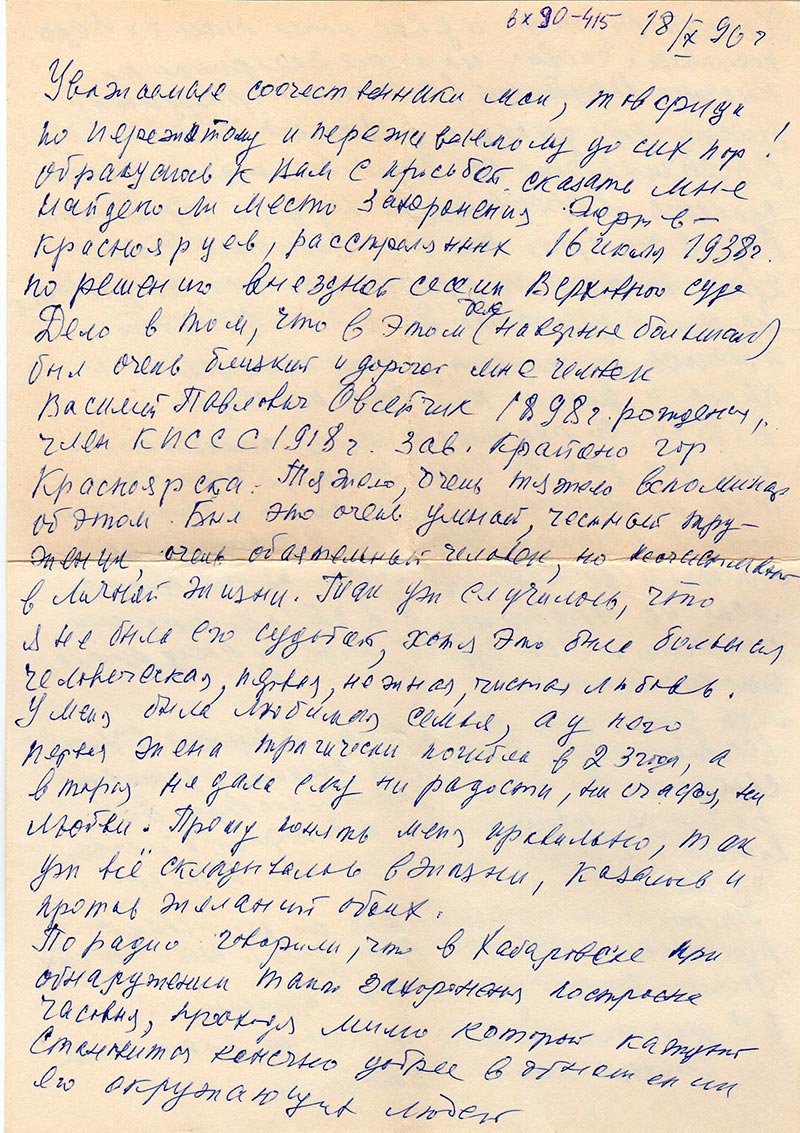 вх 90-415 18/IX 90 г
Уважаемые соотечественники мои, товарищи
по пережитому и переживаемому до сих пор!
обращаюсь к Вам с просьбой сказать мне
найдено ли место захоронения жертв –
красноярцев, расстрелянных 16 июля 1938г.
по решению выездной сессии Верховного суда
Дело в том, что в этом деле (наверное большом)
был очень близкий и дорогой мне человек
Василий Павлович Овсейчик 1898г. рождения,
член КПСС С 1918г. зав. Крайоно гор
Красноярска. Тяжело, очень тяжело вспоминать
об этом. Был это очень умный, честный тру-
женик, очень обаятельный человек, но несчастливый
в личной жизни. Так уж случилось, что
я не была его судьбой, хотя это была большая
человеческая, первая, нежная, чистая любовь.
У меня была любимая семья, а у него
первая жена трагически погибла в 23 года, а
вторая не дала ему ни радости, ни счастья, ни
любви. Прошу понять меня правильно, так
уж всё складывалось в жизни, казалось и
против желаний обоих.
По радио говорили, что в Хабаровске при
обнаружении такого захоронения построена
часовня, проходя мимо которой каждый
становится конечно добрее в отношении
его окружающих людей